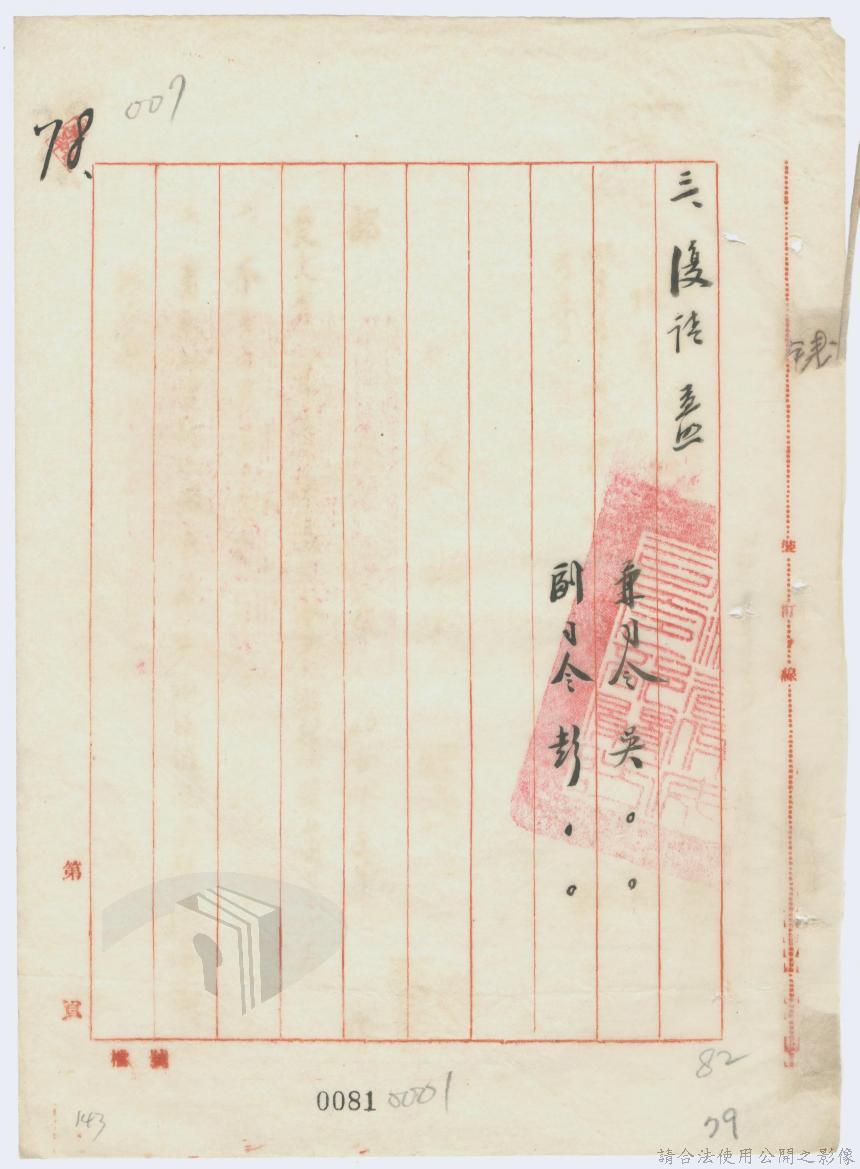 007
78、
三、復請 查照
兼司令 吳。。
副司令 彭。。
裝訂線
第 頁
檔 號
0081 0001
82
79
143
請合法使用公開之影像